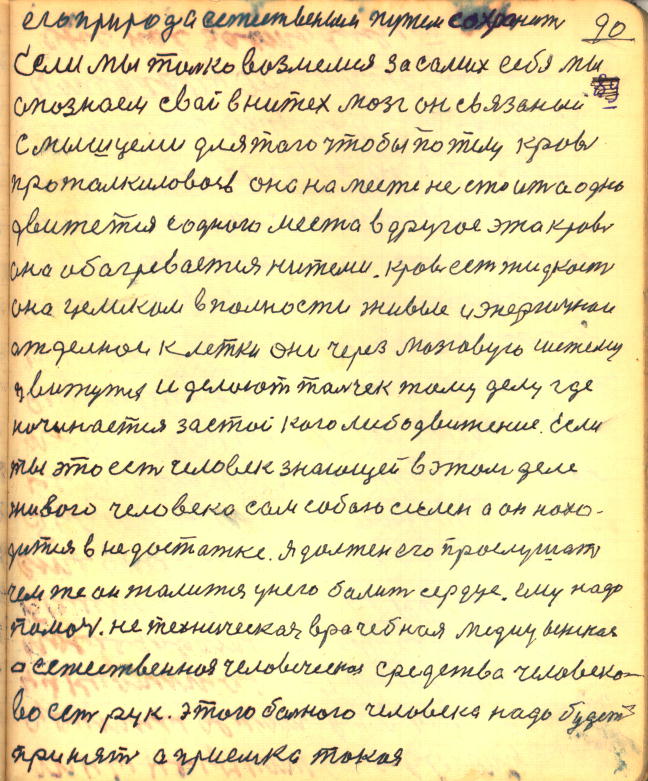 его природа естественым путем сохранит 90
Если мы толко возмемся за самих себя мы
опознаем свай внитех мозг он связаный
с мышцеми для того чтобы по телу кров
проталкиловась она на месте не стоит а одно
движется содного места в другое эта кров
она обагревается нитеми. кров ест жидкост
она целиком вполности живые и энергичнои
отделнои клетки они через мозговую систему
движутся и делоют талчек тому делу где
начинается застой кого либо движение. Если
ты это ест человек знающей в этом деле
живого человека сам собою силен а он нахо-
дится в недостатке. я должен его прослушат
чем же он жалится у него балит сердце. ему надо
помоч. не техническая врачебная медицынская
а естественная человеческая средства человеко-
во ест рук. этого болного человека надо будет
принят а приемка такая